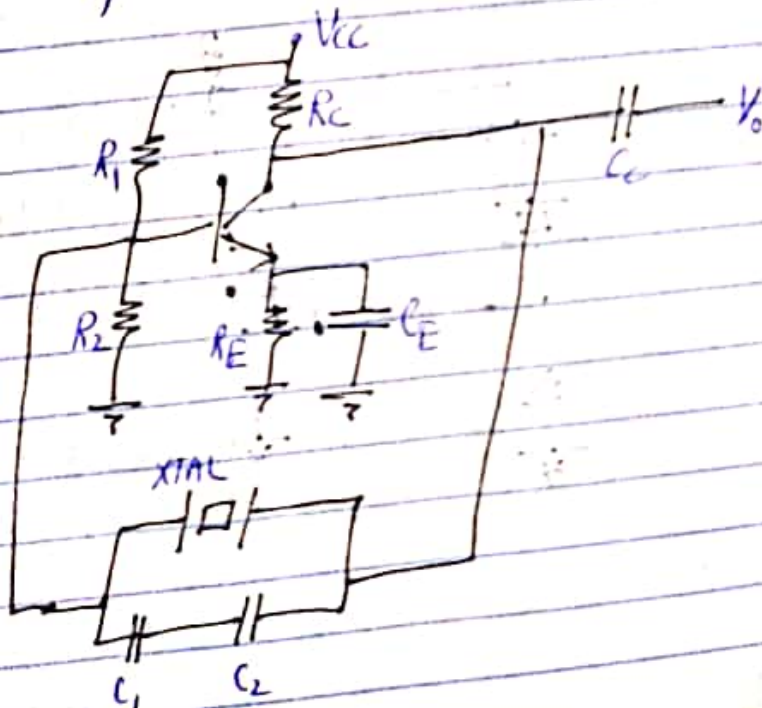 Vcc
RC
R1
Vo
Cc
R2
RE
CE
XTAL
C1
C2